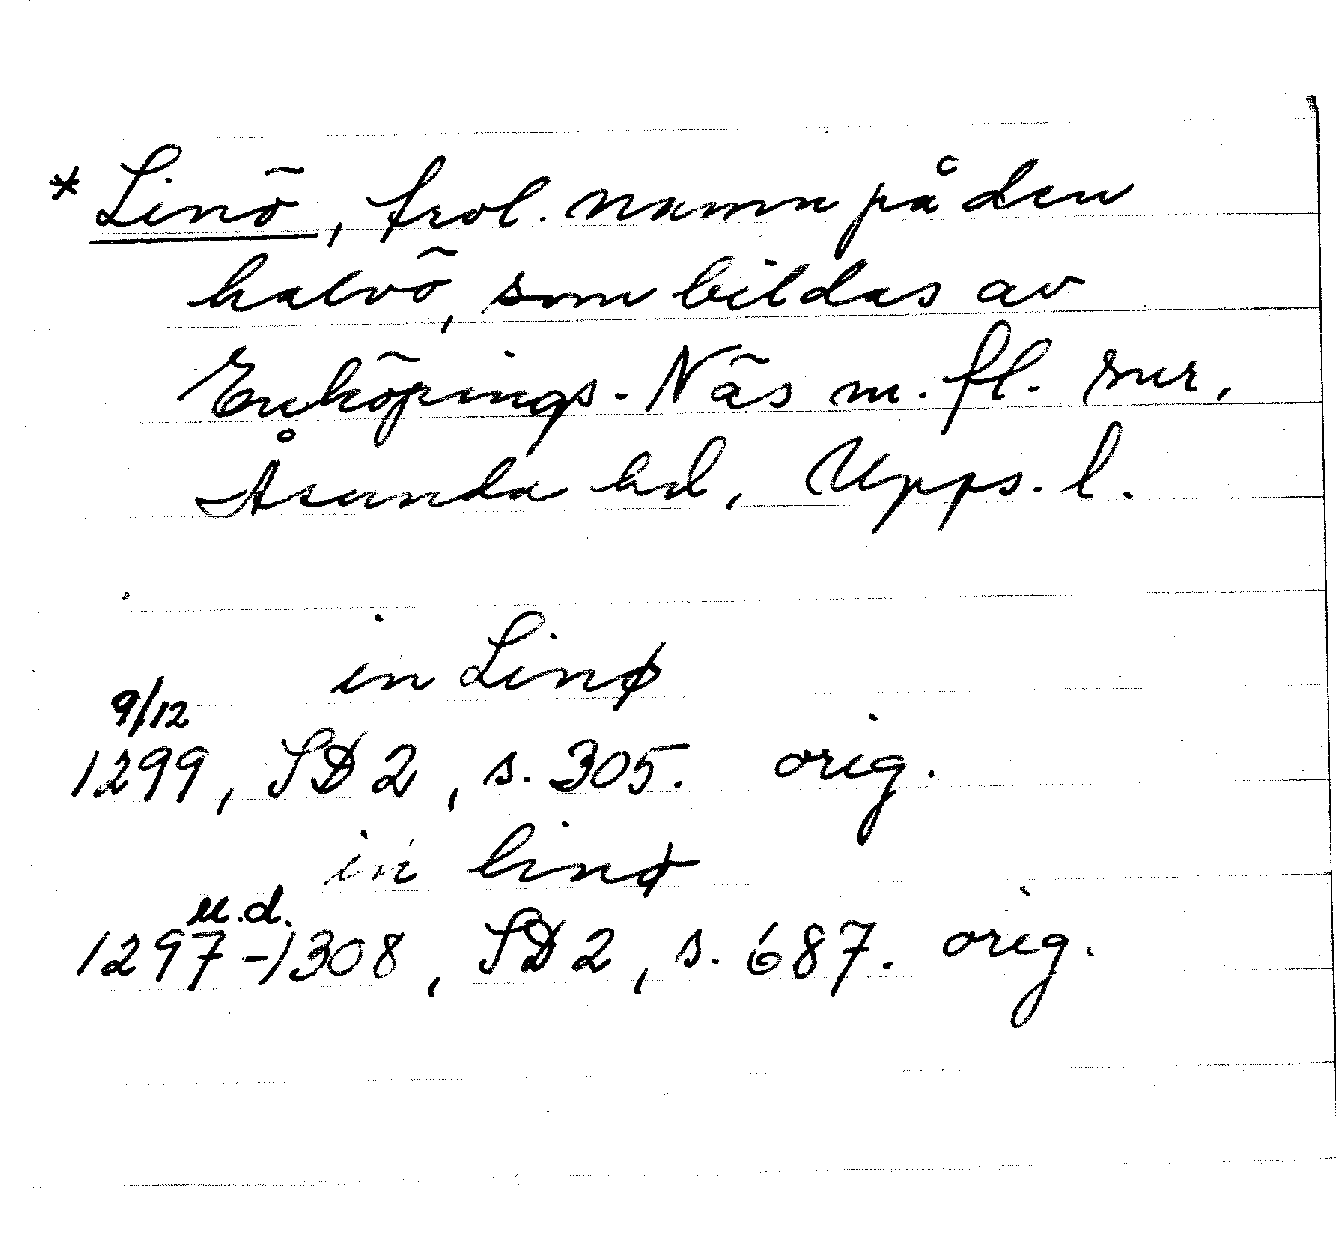 *Linö, trol. namn på den
halvö, som bildas av
Enköpings-Näs m. fl. snr,
Åsunda hd, Upps. l.
in Linø
9/12
1299, SD 2, s. 305. orig.
in linø
u.d.
1297-1308, SD 2, s. 687. orig.